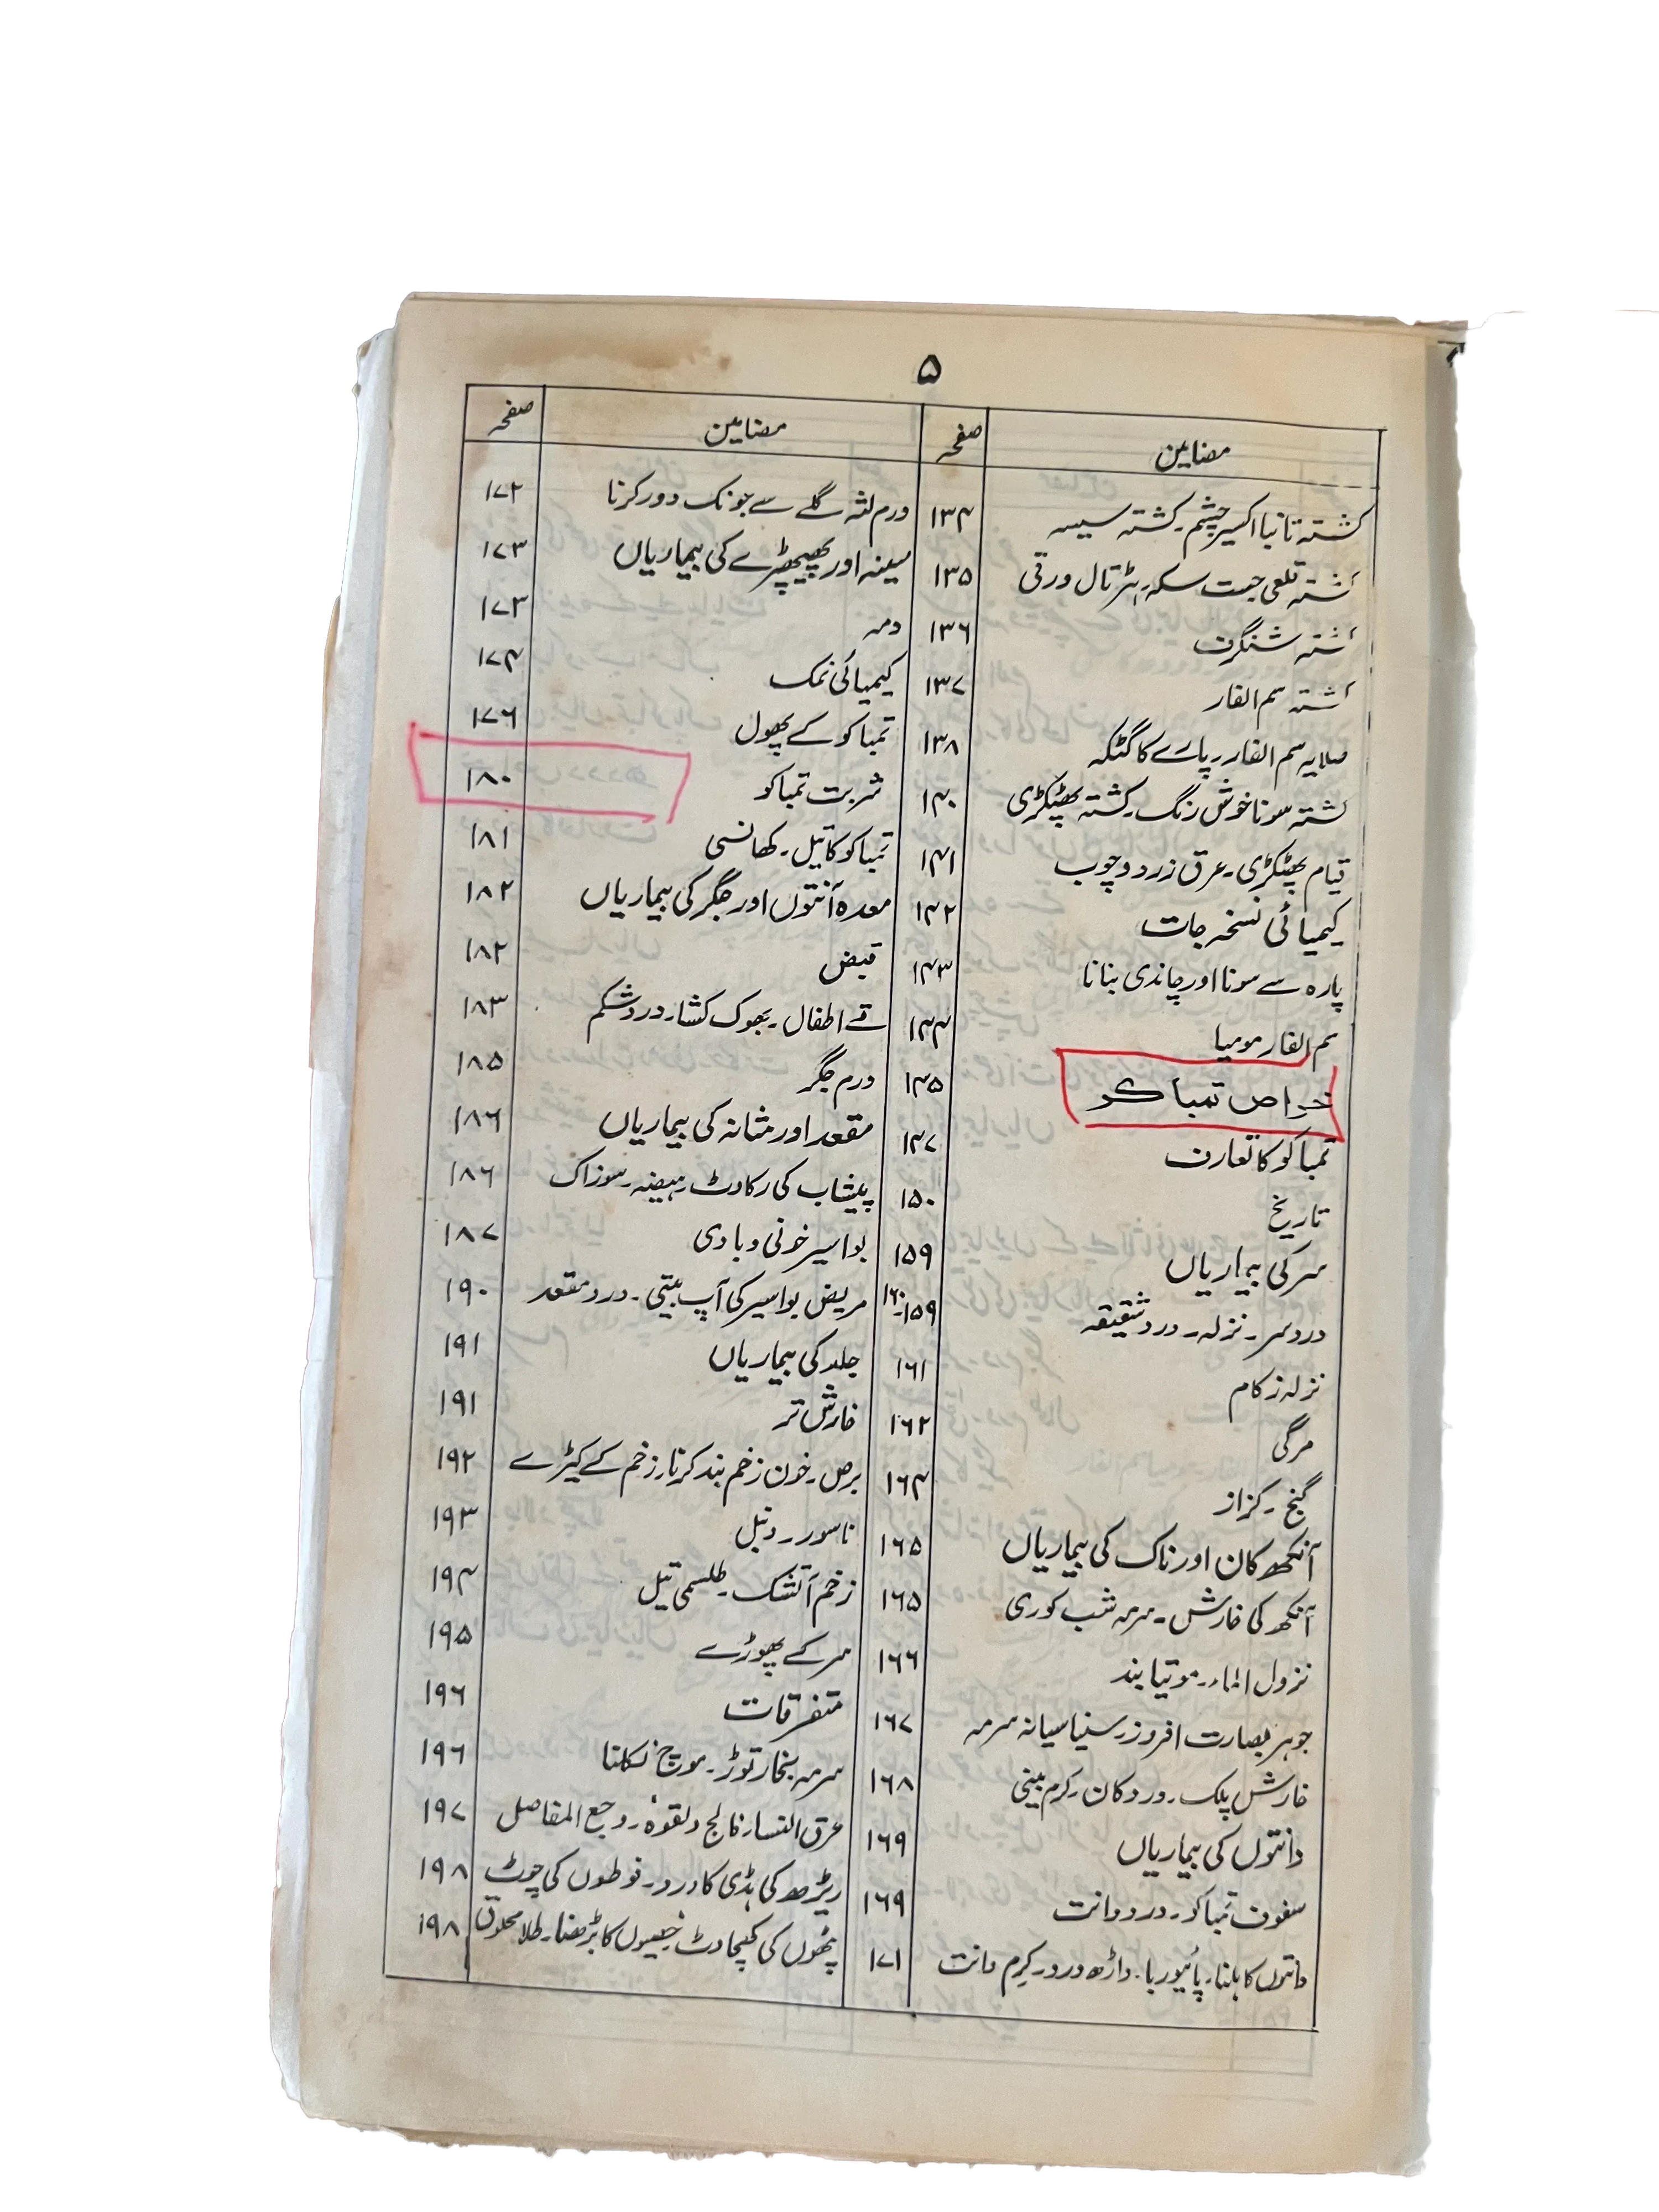 ۵
مضامین صفحہ مضامین صفحہ
کشتہ تانبا اکسیر چشم۔ کشتہ سیسہ ۱۳۴
کشتہ قلعی جست سکہ۔ ہڑتال ورقی ۱۳۵
کشتہ شنگرف ۱۳۶
کشتہ سم الفار ۱۳۷
صلایہ سم الفار۔ پارے کا گٹکہ ۱۳۸
کشتہ سونا خوش رنگ۔ کشتہ پھٹکڑی ۱۴۰
قیام پھٹکڑی۔ عرق زرد و چوب ۱۴۱
کیمیائی نسخہ جات ۱۴۲
پارہ سے سونا اور چاندی بنانا ۱۴۳
سم الفار مومیا ۱۴۴
خواص تمباکو ۱۴۵
تمباکو کا تعارف ۱۴۷
تاریخ ۱۵۰
سر کی بیماریاں ۱۵۹
درد سر۔ نزلہ۔ درد شقیقہ ۱۵۹-۱۶۰
نزلہ زکام ۱۶۱
مرگی ۱۶۲
گنج۔ کزاز ۱۶۴
آنکھ کان اور ناک کی بیماریاں ۱۶۵
آنکھ کی خارش۔ سرمہ شب کوری ۱۶۵
نزول الماء۔ موتیا بند ۱۶۶
جوہر بصارت افروز۔ سنیاسیانہ سرمہ ۱۶۷
خارش پلک۔ درد کان۔ کرم بینی ۱۶۸
دانتوں کی بیماریاں ۱۶۹
سفوف تمباکو۔ درد دانت ۱۶۹
دانتوں کا ہلنا۔ پائیوریا۔ داڑھ درد۔ کرم دانت ۱۷۱
ورم لثہ گلے سے جونک دور کرنا ۱۷۲
سینہ اور پھیپھڑے کی بیماریاں ۱۷۳
دمہ ۱۷۳
کیمیائی نمک ۱۷۴
تمباکو کے پھول ۱۷۶
شربت تمباکو ۱۸۰
تمباکو کا تیل۔ کھانسی ۱۸۱
معدہ آنتوں اور جگر کی بیماریاں ۱۸۲
قبض ۱۸۲
قے اطفال۔ بھوک کشا۔ درد شکم ۱۸۳
ورم جگر ۱۸۵
مقعد اور مثانہ کی بیماریاں ۱۸۶
پیشاب کی رکاوٹ۔ ہیضہ۔ سوزاک ۱۸۶
بواسیر خونی و بادی ۱۸۷
مریض بواسیر کی آپ بیتی۔ درد مقعد ۱۹۰
جلد کی بیماریاں ۱۹۱
خارش تر ۱۹۱
برص۔ خون زخم بند کرنا۔ زخم کے کیڑے ۱۹۲
ناسور۔ دنبل ۱۹۳
زخم آتشک۔ طلسمی تیل ۱۹۴
سر کے پھوڑے ۱۹۵
متفرقات ۱۹۶
سرمہ بخار توڑ۔ موچ نکلنا ۱۹۶
عرق النساء۔ فالج و لقوہ۔ وجع المفاصل ۱۹۷
ریڑھ کی ہڈی کا درد۔ فوطوں کی چوٹ ۱۹۸
پٹھوں کی کھچاوٹ۔ خصیوں کا بڑھنا۔ طلا محلوق ۱۹۸